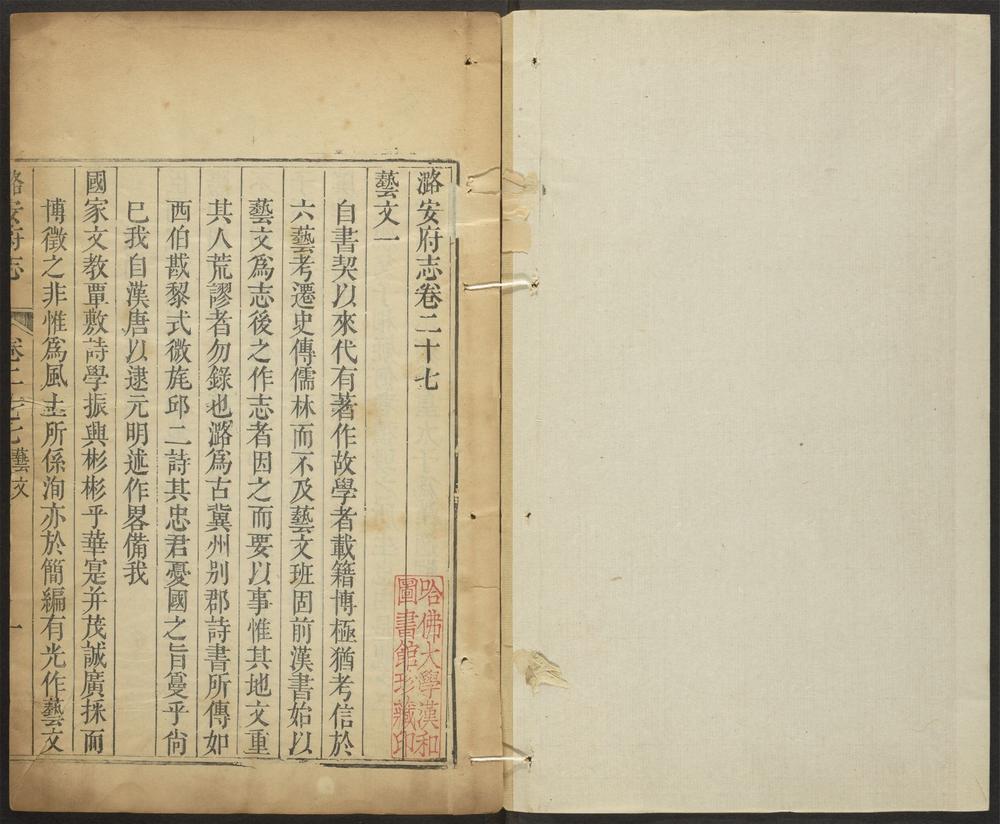 潞安府志卷二十七
藝文一
自書契以來代有著作故學者載籍博極猶考信於
六藝考遷史傳儒林而不及藝文班固前漢書始以
藝文爲志後之作志者因之而要以事惟其地文重
其人荒謬者勿錄也潞爲古冀州别郡詩書所傳如
西伯戡黎式微旄邱二詩其忠君憂國之旨敻乎尙
已我自漢唐以逮元明述作畧備我
國家文教覃敷詩學振興彬彬乎華寔并茂誠廣採而
博徵之非惟爲風土所係洵亦於簡編有光作藝文
潞安府志
卷二十七藝文
一
哈佛大學漢和
圖書館珍藏印